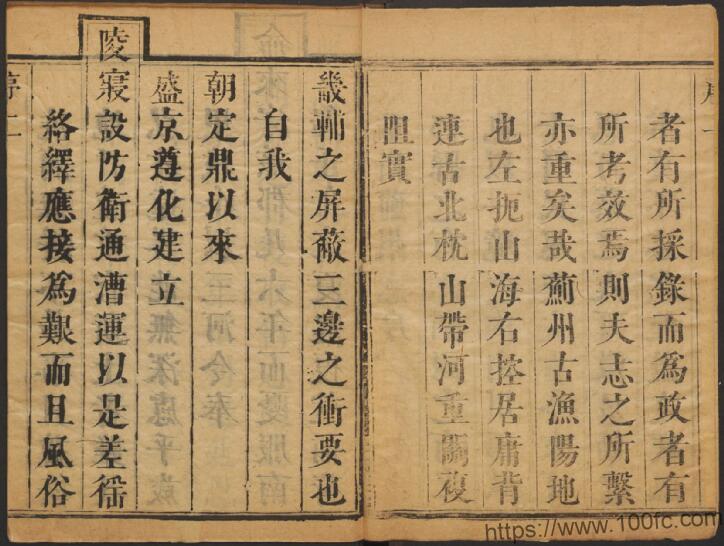 者有所採錄而爲政者有
所考效焉則夫志之所繫
亦重矣哉薊州古漁陽地
也左扼山海右控居庸背
連古北枕山帶河重關複
阻實
畿輔之屏蔽三邊之衝要也
自我
朝定鼎以來
盛京遵化建立
陵寢設防衛通漕運以是差徭
絡繹應接爲艱而且風俗
https://www.100fc.com